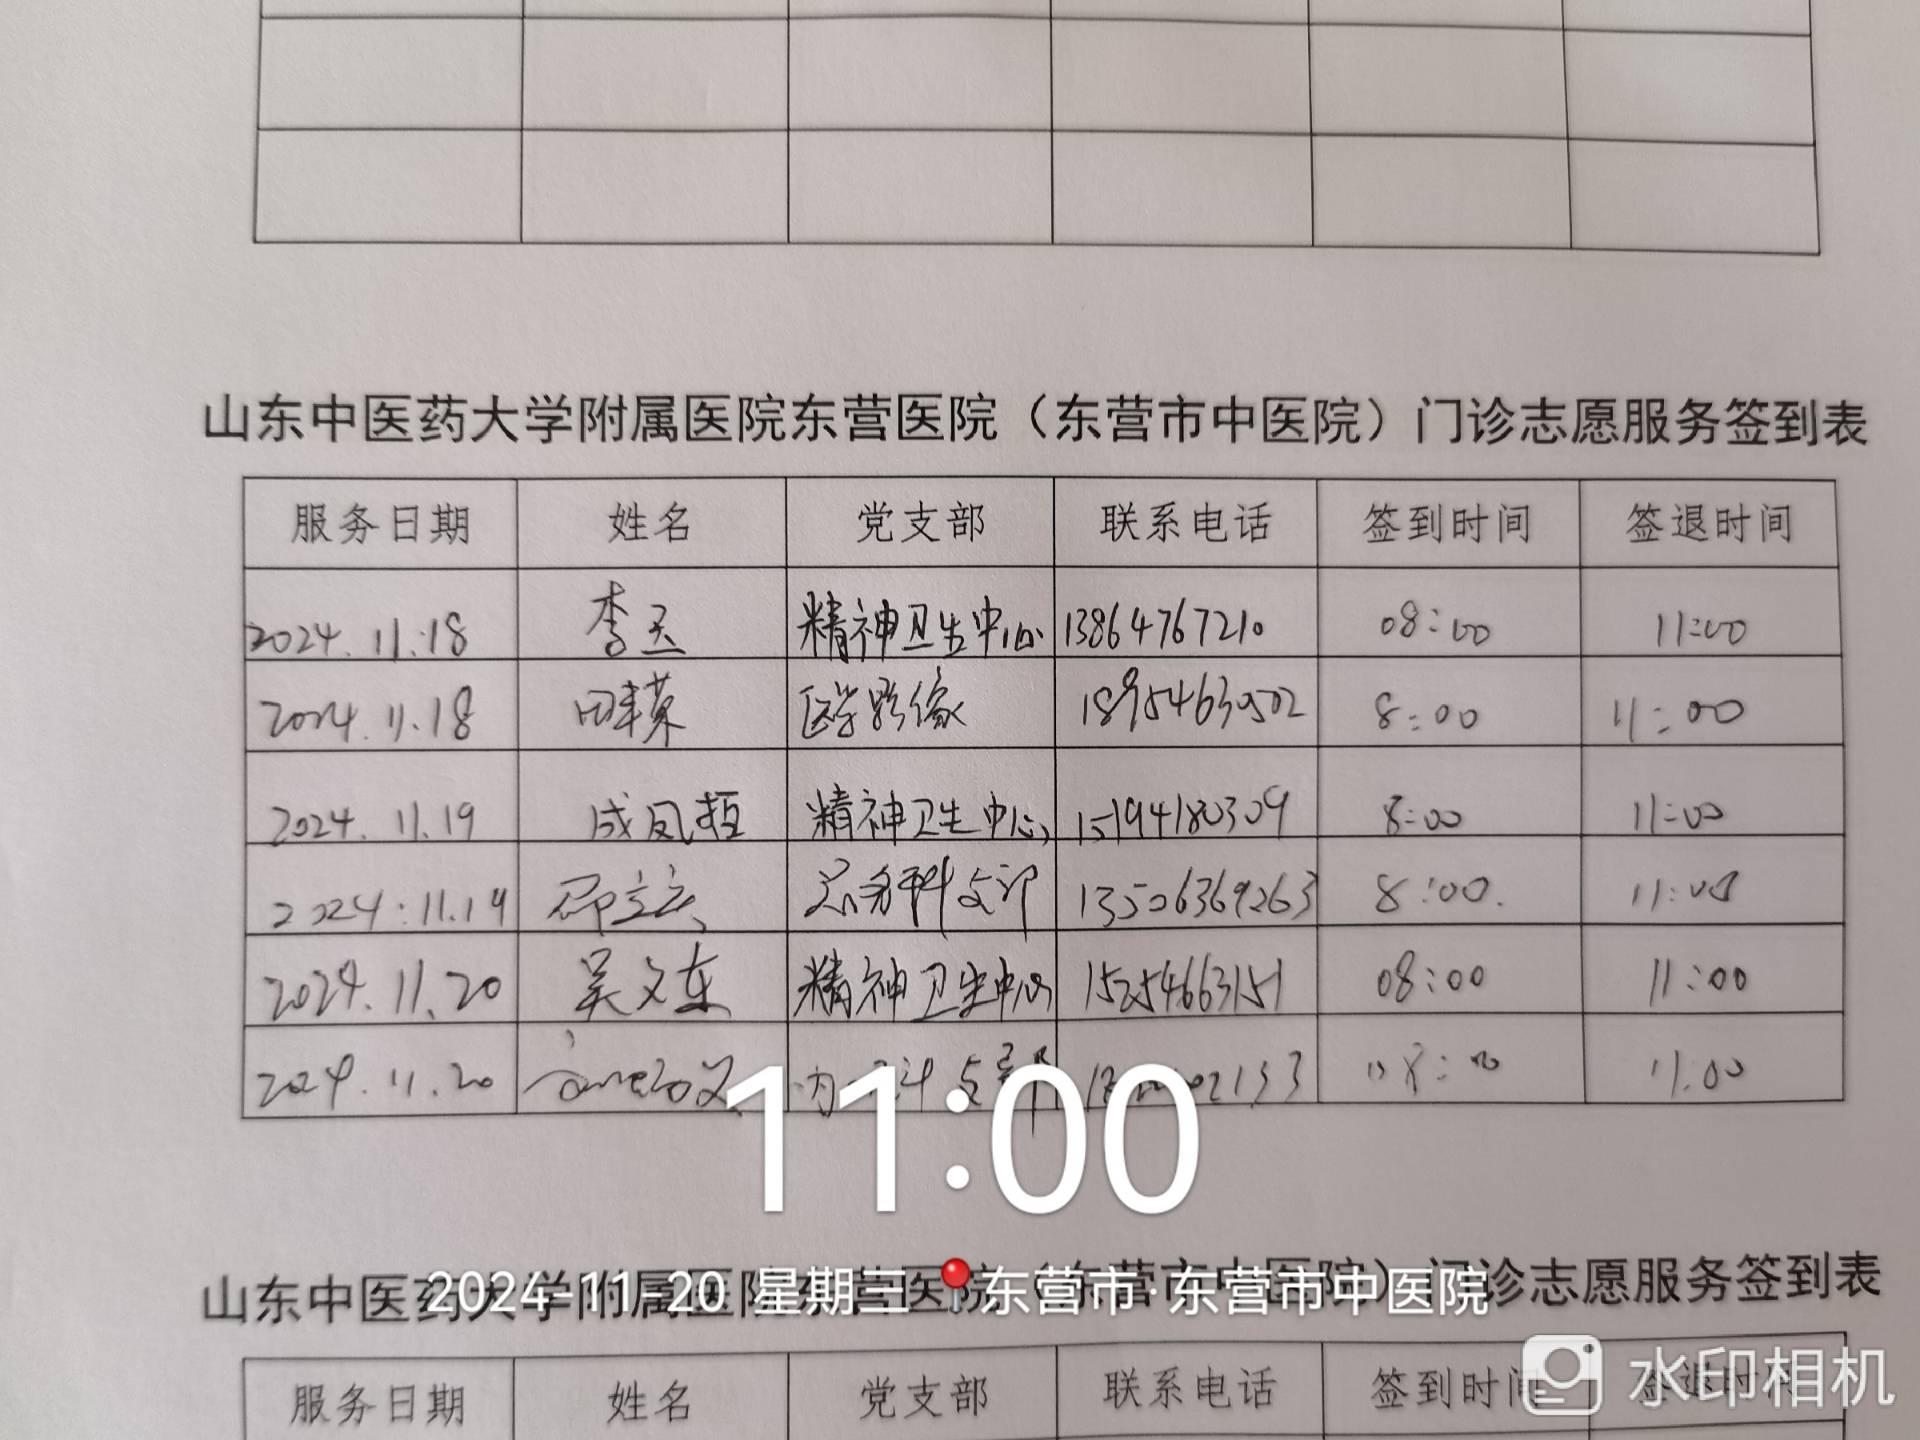 山东中医药大学附属医院东营医院（东营市中医院）门诊志愿服务签到表
服务日期 姓名 党支部 联系电话 签到时间 签退时间
2024.11.18 李玉 精神卫生中心 13864767210 08:00 11:00
2024.11.18 医学影像 18954630502 8:00 11:00
2024.11.19 成凤桓 精神卫生中心 15194180309 8:00 11:00
2024.11.19 13506369263 8:00. 11:00
2024.11.20 吴文东 精神卫生中心 15254663151 08:00 11:00
2024.11.20 11:00
11:00
山东中医药大学附属医院东营医院（东营市中医院）门诊志愿服务签到表
2024-11-20 星期三 东营市·东营市中医院
服务日期 姓名 党支部 联系电话 签到时间 签退时间
水印相机